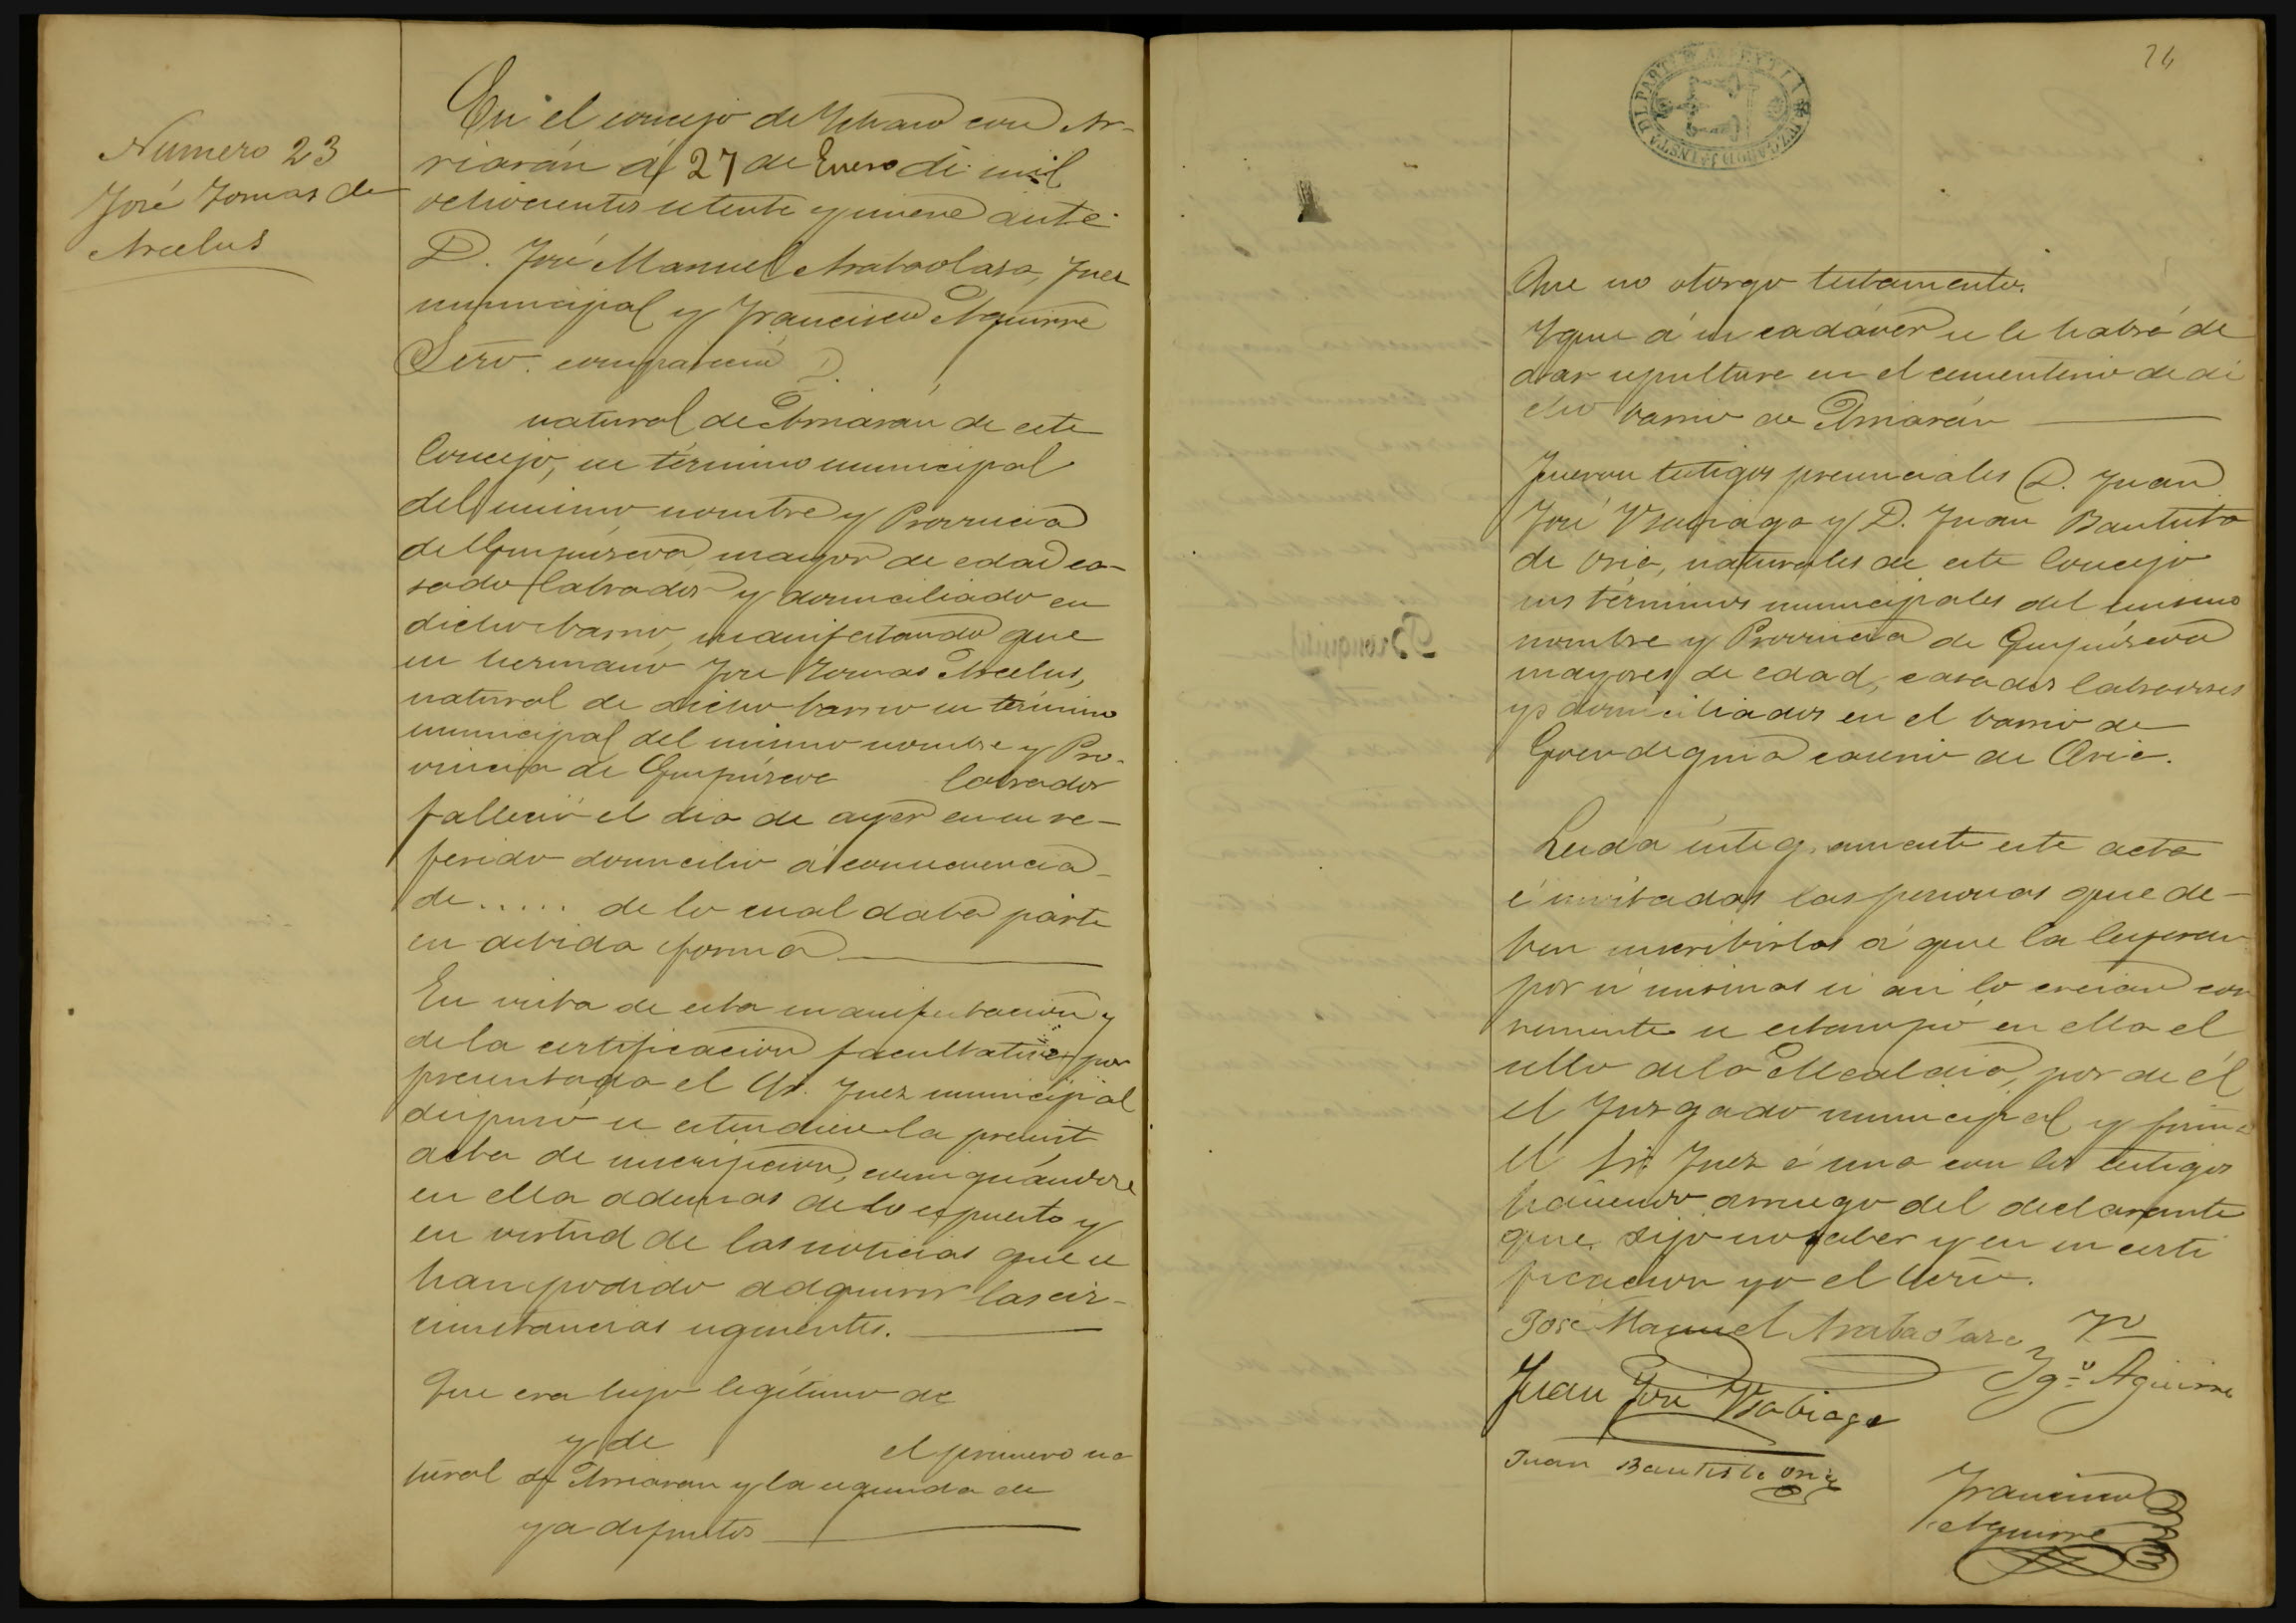 Numero 23
José Tomas de
Arcelus
En el concejo de Ychaso con Ar-
riarán á 27 de Enero de mil
ochocientos setenta y nueve ante
D. José Manuel Arabaolasa, Juez
municipal y Francisco Aguirre
Secro. comparecia D.
natural de Arriarán de este
Concejo, su término municipal
del mismo nombre y Provincia
de Guipúzcoa, mayor de edad ca-
sado labrador y domiciliado en
dicho barrio, manifestando que
su hermano José Tomas Arcelus,
natural de dicho barrio su término
municipal del mismo nombre y Pro-
vincia de Guipúzcoa labrador
falleció el dia de ayer en su re-
ferido domicilio á consecuencia
de ..... de lo cual daba parte
en debida forma
En vista de esta manifestacion y
de la certificacion facultativa por
presentada el Sr. Juez municipal
dispuso se estendiese la presente
acta de inscripcion, consignándose
en ella ademas de lo espuesto y
en virtud de las noticias que se
han podido adquirir las cir-
cunstancias siguientes.
Que era hijo legítimo de
y de el primero na
tural de Arriarán y la segunda de
ya difuntos
26
Que no otorgo testamento.
Y que á su cadáver se le habrá de
dar sepultura en el cementerio de di
cho barrio de Arriarán
Fueron testigos presenciales D. Juan
José Usabiaga y D. Juan Bautista
de Oria, naturales de este Concejo
sus términos municipales del mismo
nombre y Provincia de Guipúzcoa
mayores de edad, casados labradores
y domiciliados en el barrio de
caserio de Oria.
Leida integramente este acta
é invitadas las personas que de-
ben suscribirlas á que la leyeran
por si mismas si asi lo creian con
veniente se estampó en ella el
sello de la Alcaldia, por de él
el Juzgado municipal y firmó
el Sr. Juez é una con los testigos
haciendo á ruego del declarante
que dijo no saber y en su certi
ficacion yo el Secro.
José Manuel Arabaolaza
Ygo. Aguirre
Juan José Usabiaga
Juan Bautista Oria
Francisco
Aguirre